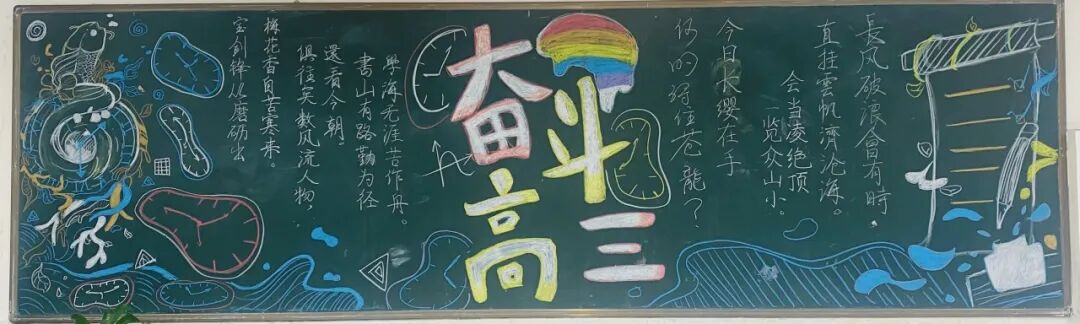 宝剑锋从磨砺出
梅花香自苦寒来。
俱往矣数风流人物，
還看今朝。
書山有路勤为径
學海无涯苦作舟。
奋斗
高三
長风破浪會有時，
直挂雲帆濟沧海。
会当凌绝顶
一览众山小。
今日长缨在手
何时缚住苍龍？